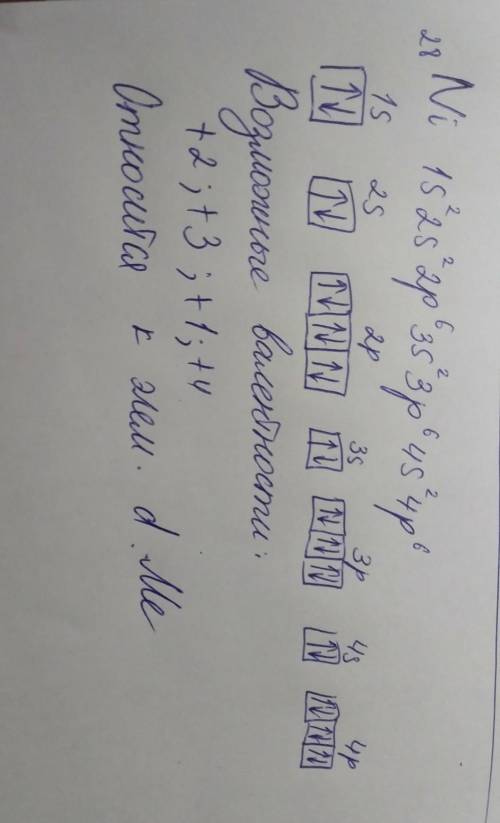 28 Ni 1s² 2s² 2p⁶ 3s² 3p⁶ 4s² 4p⁶
1s 2s 2p 3s 3p 4s 4p
↑↓ ↑↓ ↑↓ ↑↓ ↑↓ ↑↓ ↑↓ ↑↓ ↑↓ ↑↓ ↑↓ ↑↓ ↑↓
Возможные валентности:
+2; +3; +1; +4
Относится к элем. d. Me